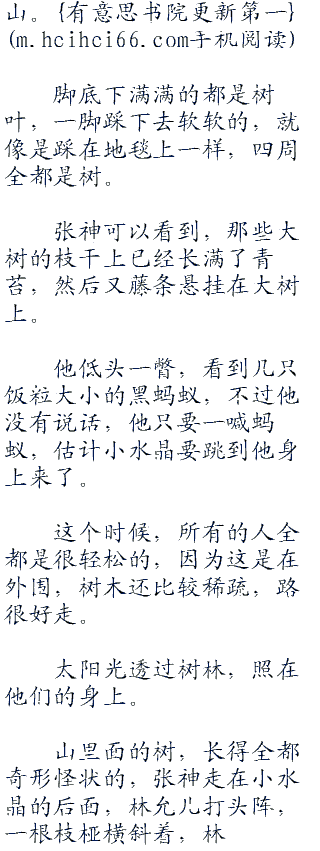 山。{有意思书院更新第一}
(m.hcihci66.com手机阅读)
脚底下满满的都是树
叶，一脚踩下去软软的，就
像是踩在地毯上一样，四周
全都是树。
张神可以看到，那些大
树的枝干上已经长满了青
苔，然后又藤条悬挂在大树
上。
他低头一瞥，看到几只
饭粒大小的黑蚂蚁，不过他
没有说话，他只要一喊蚂
蚁，估计小水晶要跳到他身
上来了。
这个时候，所有的人全
都是很轻松的，因为这是在
外围，树木还比较稀疏，路
很好走。
太阳光透过树林，照在
他们的身上。
山里面的树，长得全都
奇形怪状的，张神走在小水
晶的后面，林允儿打头阵，
一根枝桠横斜着，林